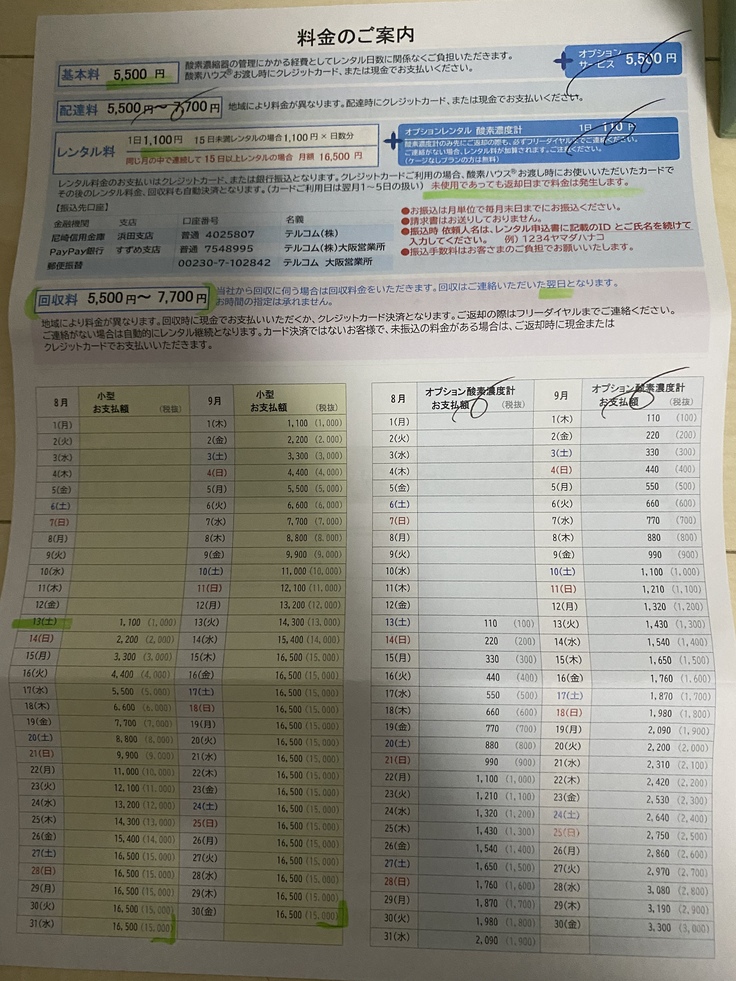 料金のご案内
基本料 5,500 円
酸素濃縮器の管理にかかる経費としてレンタル日数に関係なくご負担いただきます。
酸素ハウス®お渡し時にクレジットカード、または現金でお支払いください。
+ オプションサービス 5,500 円
配達料 5,500 円〜 7,700 円 地域により料金が異なります。配達時にクレジットカード、または現金でお支払いください。
レンタル料
1日 1,100円 15日未満レンタルの場合 1,100円 × 日数分
同じ月の中で連続して 15日以上レンタルの場合 月額 16,500 円
+ オプションレンタル 酸素濃度計 1日 110 円
酸素濃度計のみ先にご返却の際も、必ずフリーダイヤルまでご連絡ください。
ご連絡がない場合、レンタル料が加算されます。ご注意ください。
(ケージなしプランの方は無料)
レンタル料金のお支払いはクレジットカード、または銀行振込となります。クレジットカードご利用の場合、酸素ハウス®お渡し時にお使いいただいたカードで
その後のレンタル料金、回収料も自動決済となります。(カードご利用日は翌月1〜5日の扱い) 未使用であっても返却日まで料金は発生します。
【振込先口座】
金融機関 支店 口座番号 名義
尼崎信用金庫 浜田支店 普通 4025807 テルコム(株)
PayPay銀行 すずめ支店 普通 7548995 テルコム(株)大阪営業所
郵便振替 00230-7-102842 テルコム 大阪営業所
●お振込は月単位で毎月末日までにお振込ください。
●請求書はお送りしておりません。
●振込時 依頼人名は、レンタル申込書に記載のID とご氏名を続けて
入力してください。 例) 1234ヤマダハナコ
●振込手数料はお客さまのご負担でお願いいたします。
回収料 5,500 円〜 7,700 円
当社から回収に伺う場合は回収料金をいただきます。回収はご連絡いただいた翌日となります。
お時間の指定は承れません。
地域により料金が異なります。回収時に現金でお支払いいただくか、クレジットカード決済となります。ご返却の際はフリーダイヤルまでご連絡ください。
ご連絡がない場合は自動的にレンタル継続となります。カード決済ではないお客様で、未振込の料金がある場合は、ご返却時に現金または
クレジットカードでお支払いいただきます。
8月 小型 お支払額 (税抜) 9月 小型 お支払額 (税抜)
1(月) 1(木) 1,100 (1,000)
2(火) 2(金) 2,200 (2,000)
3(水) 3(土) 3,300 (3,000)
4(木) 4(日) 4,400 (4,000)
5(金) 5(月) 5,500 (5,000)
6(土) 6(火) 6,600 (6,000)
7(日) 7(水) 7,700 (7,000)
8(月) 8(木) 8,800 (8,000)
9(火) 9(金) 9,900 (9,000)
10(水) 10(土) 11,000 (10,000)
11(木) 11(日) 12,100 (11,000)
12(金) 12(月) 13,200 (12,000)
13(土) 1,100 (1,000) 13(火) 14,300 (13,000)
14(日) 2,200 (2,000) 14(水) 15,400 (14,000)
15(月) 3,300 (3,000) 15(木) 16,500 (15,000)
16(火) 4,400 (4,000) 16(金) 16,500 (15,000)
17(水) 5,500 (5,000) 17(土) 16,500 (15,000)
18(木) 6,600 (6,000) 18(日) 16,500 (15,000)
19(金) 7,700 (7,000) 19(月) 16,500 (15,000)
20(土) 8,800 (8,000) 20(火) 16,500 (15,000)
21(日) 9,900 (9,000) 21(水) 16,500 (15,000)
22(月) 11,000 (10,000) 22(木) 16,500 (15,000)
23(火) 12,100 (11,000) 23(金) 16,500 (15,000)
24(水) 13,200 (12,000) 24(土) 16,500 (15,000)
25(木) 14,300 (13,000) 25(日) 16,500 (15,000)
26(金) 15,400 (14,000) 26(月) 16,500 (15,000)
27(土) 16,500 (15,000) 27(火) 16,500 (15,000)
28(日) 16,500 (15,000) 28(水) 16,500 (15,000)
29(月) 16,500 (15,000) 29(木) 16,500 (15,000)
30(火) 16,500 (15,000) 30(金) 16,500 (15,000)
31(水) 16,500 (15,000)
8月 オプション酸素濃度計 お支払額 (税抜) 9月 オプション酸素濃度計 お支払額 (税抜)
1(月) 1(木) 110 (100)
2(火) 2(金) 220 (200)
3(水) 3(土) 330 (300)
4(木) 4(日) 440 (400)
5(金) 5(月) 550 (500)
6(土) 6(火) 660 (600)
7(日) 7(水) 770 (700)
8(月) 8(木) 880 (800)
9(火) 9(金) 990 (900)
10(水) 10(土) 1,100 (1,000)
11(木) 11(日) 1,210 (1,100)
12(金) 12(月) 1,320 (1,200)
13(土) 110 (100) 13(火) 1,430 (1,300)
14(日) 220 (200) 14(水) 1,540 (1,400)
15(月) 330 (300) 15(木) 1,650 (1,500)
16(火) 440 (400) 16(金) 1,760 (1,600)
17(水) 550 (500) 17(土) 1,870 (1,700)
18(木) 660 (600) 18(日) 1,980 (1,800)
19(金) 770 (700) 19(月) 2,090 (1,900)
20(土) 880 (800) 20(火) 2,200 (2,000)
21(日) 990 (900) 21(水) 2,310 (2,100)
22(月) 1,100 (1,000) 22(木) 2,420 (2,200)
23(火) 1,210 (1,100) 23(金) 2,530 (2,300)
24(水) 1,320 (1,200) 24(土) 2,640 (2,400)
25(木) 1,430 (1,300) 25(日) 2,750 (2,500)
26(金) 1,540 (1,400) 26(月) 2,860 (2,600)
27(土) 1,650 (1,500) 27(火) 2,970 (2,700)
28(日) 1,760 (1,600) 28(水) 3,080 (2,800)
29(月) 1,870 (1,700) 29(木) 3,190 (2,900)
30(火) 1,980 (1,800) 30(金) 3,300 (3,000)
31(水) 2,090 (1,900)